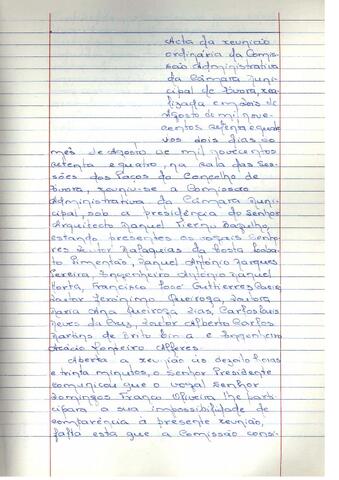 Acta da reunião
ordinária da Comis-
são Administrativa
da Câmara Muni-
cipal de Évora, rea-
lizada em dois de
Agosto de mil nove-
centos setenta e quatro
Aos dois dias do
mês de Agosto de mil novecentos
setenta e quatro, na Sala das Ses-
sões dos Paços do Concelho de
Évora, reuniu-se a Comissão
Administrativa da Câmara Muni-
cipal, sob a presidência do Senhor
Arquitecto Manuel
estando presentes os vogais Senho-
res
Pimentão, Manuel António Marques
Pereira, Engenheiro António Manuel
Horta, Francisco José Gutterres
Doutor Jerónimo Queiroga, Doutora
Maria Ana Queiroga Dias, Carlos Luis
Neves da Cruz, Doutor Alberto Carlos
Martins de Brito Lima e Engenheiro
Acácio Monteiro Alferes.
Aberta a reunião às dezoito horas
e trinta minutos, o Senhor Presidente
comunicou que o vogal Senhor
Domingos Franco Oliveira lhe parti-
cipara a sua impossibilidade de
comparência à presente reunião,
falta esta que a Comissão consi-